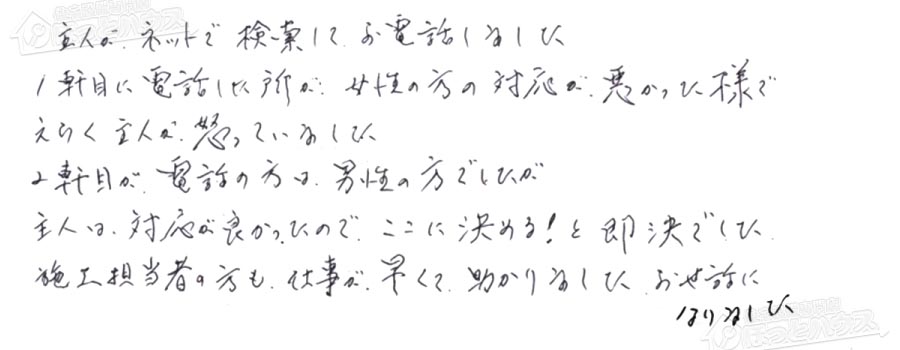 主人が、ネットで検索して、お電話しました
1軒目に電話した所が、女性の方の対応が、悪かった様で
えらく主人が、怒っていました
2軒目が、電話の方は、男性の方でしたが
主人は、対応が良かったので、ここに決める!と即決でした
施工担当者の方も、仕事が、早くて、助かりました お世話に
なりました
ほっとハウス